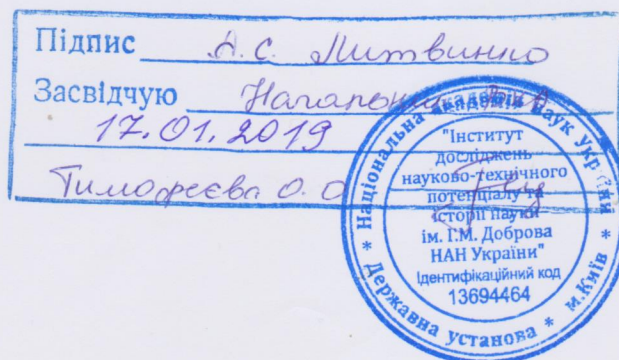 Підпис А.С. Литвинко
Засвідчую Начальник
17.01.2019
Тимофєєва О.О
Національна академія наук України
* Державна установа * м.Київ *
"Інститут
досліджень
науково-технічного
потенціалу та
історії науки
ім. Г.М. Доброва
НАН України"
Ідентифікаційний код
13694464